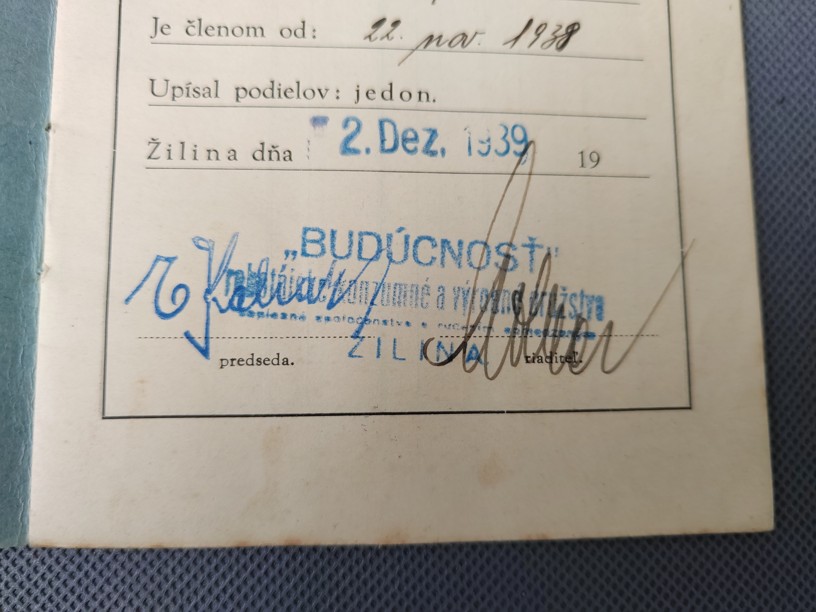 Je členom od: 22. nov. 1938
Upísal podielov: jedon.
Žilina dňa 2. Dez. 1939 19
„BUDÚCNOSŤ“
robotnícke konzumné a výrobné družstvo
zapísané spoločenstvo s ručením obmedzeným
ŽILINA
predseda. riaditeľ.